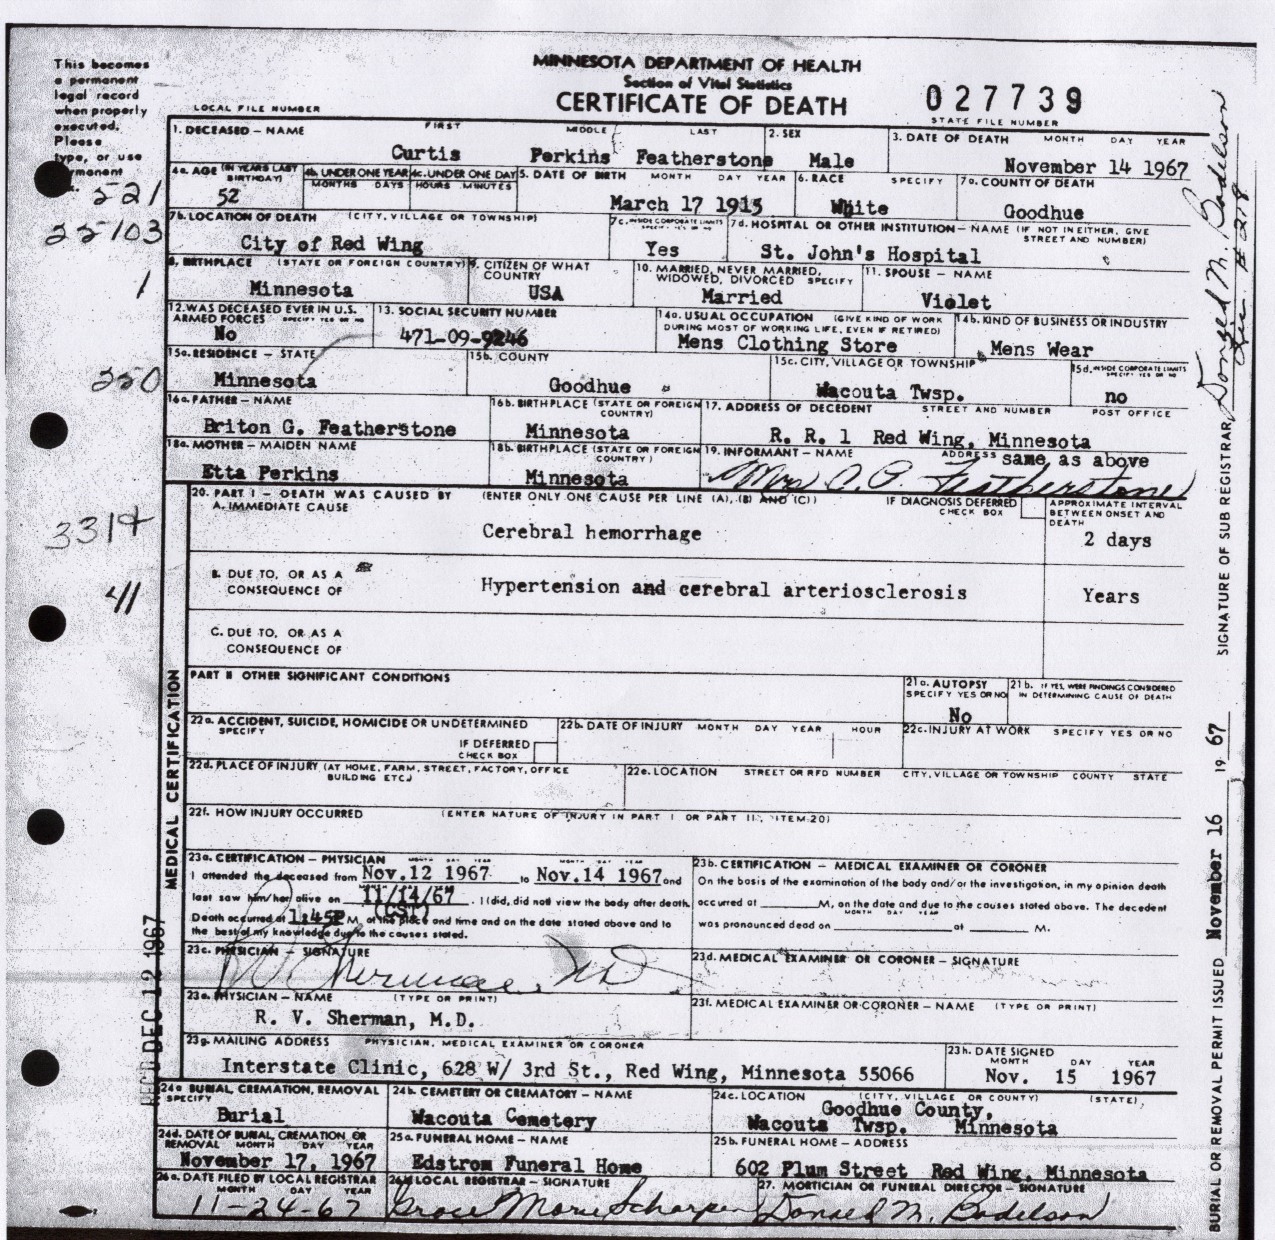 This becomes
a permanent
legal record
when properly
executed.
Please
type, or use
MINNESOTA DEPARTMENT OF HEALTH
Section of Vital Statistics
CERTIFICATE OF DEATH
027739
LOCAL FILE NUMBER
STATE FILE NUMBER
1. DECEASED – NAME FIRST MIDDLE LAST 2. SEX 3. DATE OF DEATH MONTH DAY YEAR
Curtis Perkins Featherstone Male November 14 1967
4a. AGE (IN YEARS LAST BIRTHDAY) 4b. UNDER ONE YEAR 4c. UNDER ONE DAY 5. DATE OF BIRTH MONTH DAY YEAR 6. RACE SPECIFY 7a. COUNTY OF DEATH
MONTHS DAYS HOURS MINUTES
521
52 March 17 1915 White Goodhue
7b. LOCATION OF DEATH (CITY, VILLAGE OR TOWNSHIP) 7c. INSIDE CORPORATE LIMITS SPECIFY YES OR NO 7d. HOSPITAL OR OTHER INSTITUTION – NAME (IF NOT IN EITHER, GIVE STREET AND NUMBER)
25103
City of Red Wing Yes St. John's Hospital
8. BIRTHPLACE (STATE OR FOREIGN COUNTRY) 9. CITIZEN OF WHAT COUNTRY 10. MARRIED, NEVER MARRIED, WIDOWED, DIVORCED SPECIFY 11. SPOUSE – NAME
1
Minnesota USA Married Violet
12. WAS DECEASED EVER IN U.S. ARMED FORCES SPECIFY YES OR NO 13. SOCIAL SECURITY NUMBER 14a. USUAL OCCUPATION (GIVE KIND OF WORK DURING MOST OF WORKING LIFE, EVEN IF RETIRED) 14b. KIND OF BUSINESS OR INDUSTRY
No 471-09-9246 Mens Clothing Store Mens Wear
15a. RESIDENCE – STATE 15b. COUNTY 15c. CITY, VILLAGE OR TOWNSHIP 15d. INSIDE CORPORATE LIMITS SPECIFY YES OR NO
250
Minnesota Goodhue Wacouta Twsp. no
16a. FATHER – NAME 16b. BIRTHPLACE (STATE OR FOREIGN COUNTRY) 17. ADDRESS OF DECEDENT STREET AND NUMBER POST OFFICE
Briton G. Featherstone Minnesota R. R. 1 Red Wing, Minnesota
18a. MOTHER – MAIDEN NAME 18b. BIRTHPLACE (STATE OR FOREIGN COUNTRY) 19. INFORMANT – NAME ADDRESS same as above
Etta Perkins Minnesota Mrs C. P. Featherstone
MEDICAL CERTIFICATION
20. PART I – DEATH WAS CAUSED BY (ENTER ONLY ONE CAUSE PER LINE (A), (B) AND (C)) IF DIAGNOSIS DEFERRED CHECK BOX APPROXIMATE INTERVAL BETWEEN ONSET AND DEATH
A. IMMEDIATE CAUSE
Cerebral hemorrhage 2 days
B. DUE TO, OR AS A CONSEQUENCE OF
41
Hypertension and cerebral arteriosclerosis Years
C. DUE TO, OR AS A CONSEQUENCE OF
PART II OTHER SIGNIFICANT CONDITIONS 21a. AUTOPSY SPECIFY YES OR NO 21b. IF YES, WERE FINDINGS CONSIDERED IN DETERMINING CAUSE OF DEATH
No
22a. ACCIDENT, SUICIDE, HOMICIDE OR UNDETERMINED SPECIFY IF DEFERRED CHECK BOX 22b. DATE OF INJURY MONTH DAY YEAR HOUR 22c. INJURY AT WORK SPECIFY YES OR NO
22d. PLACE OF INJURY (AT HOME, FARM, STREET, FACTORY, OFFICE BUILDING ETC.) 22e. LOCATION STREET OR RFD NUMBER CITY, VILLAGE OR TOWNSHIP COUNTY STATE
22f. HOW INJURY OCCURRED (ENTER NATURE OF INJURY IN PART I OR PART II, ITEM 20)
23a. CERTIFICATION – PHYSICIAN MONTH DAY YEAR MONTH DAY YEAR
I attended the deceased from Nov.12 1967 to Nov.14 1967 and
last saw him/her alive on 11/14/67. I (did, did not) view the body after death.
(CST)
Death occurred at 1:45P M, at the place and time and on the date stated above and to
the best of my knowledge due to the causes stated.
23b. CERTIFICATION – MEDICAL EXAMINER OR CORONER
On the basis of the examination of the body and/or the investigation, in my opinion death
occurred at M, on the date and due to the causes stated above. The decedent
MONTH DAY YEAR
was pronounced dead on at M.
23c. PHYSICIAN – SIGNATURE 23d. MEDICAL EXAMINER OR CORONER – SIGNATURE
R V Sherman, MD
23e. PHYSICIAN – NAME (TYPE OR PRINT) 23f. MEDICAL EXAMINER OR CORONER – NAME (TYPE OR PRINT)
R. V. Sherman, M.D.
23g. MAILING ADDRESS PHYSICIAN, MEDICAL EXAMINER OR CORONER 23h. DATE SIGNED MONTH DAY YEAR
Interstate Clinic, 628 W/ 3rd St., Red Wing, Minnesota 55066 Nov. 15 1967
24a BURIAL, CREMATION, REMOVAL SPECIFY 24b. CEMETERY OR CREMATORY – NAME 24c. LOCATION (CITY, VILLAGE OR COUNTY) (STATE)
Goodhue County,
Burial Wacouta Cemetery Wacouta Twsp. Minnesota
24d. DATE OF BURIAL, CREMATION OR REMOVAL MONTH DAY YEAR 25a. FUNERAL HOME – NAME 25b. FUNERAL HOME – ADDRESS
November 17, 1967 Edstrom Funeral Home 602 Plum Street Red Wing, Minnesota
26a. DATE FILED BY LOCAL REGISTRAR MONTH DAY YEAR 26b. LOCAL REGISTRAR – SIGNATURE 27. MORTICIAN OR FUNERAL DIRECTOR – SIGNATURE
11-24-67 Grace Marie Scharpen Donald M. Bodelson
DEC 12 1967
BURIAL OR REMOVAL PERMIT ISSUED November 16 19 67 SIGNATURE OF SUB REGISTRAR Donald M. Bodelson